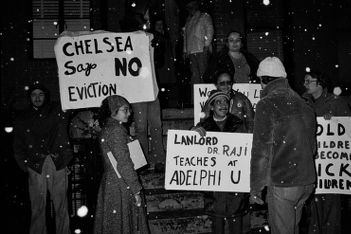 CHELSEA
Says NO
EVICTION
LANLORD
DR. RAJI
TEACHES AT
ADELPHI U
OLD
CHILDREN
BECOME
SICK
CHILDREN